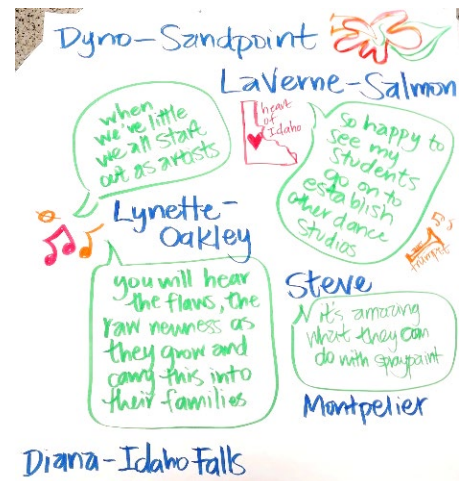 Dyno-Sandpoint
when
we've little
we all start
out as artists
LaVerne-Salmon
heart
of
Idaho
So happy to
see my
students
go on to
establish
other dance
studios
trumpet
Lynette-
Oakley
you will hear
the flaws, the
raw newness as
they grow and
carry this into
their families
Steve
it's amazing
what they can
do with spraypaint
Montpelier
Diana-Idaho Falls